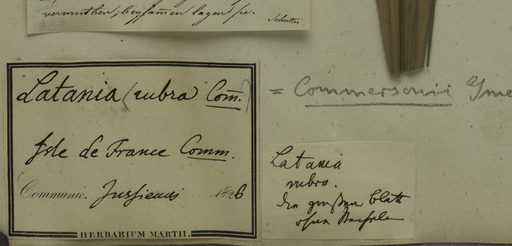 vermuthen, beysammen lagen pp.
Schultes
Latania (rubra Com̄.)
Isle de France Comm.
Communic. Jussieaus 1826
HERBARIUM MARTII.
= Commersonii Gme
Latania
rubra.
die großen blatt